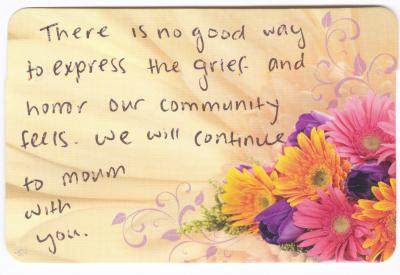 There is no good way
to express the grief and
honor our community
feels. We will continue
to mourn
with
you.